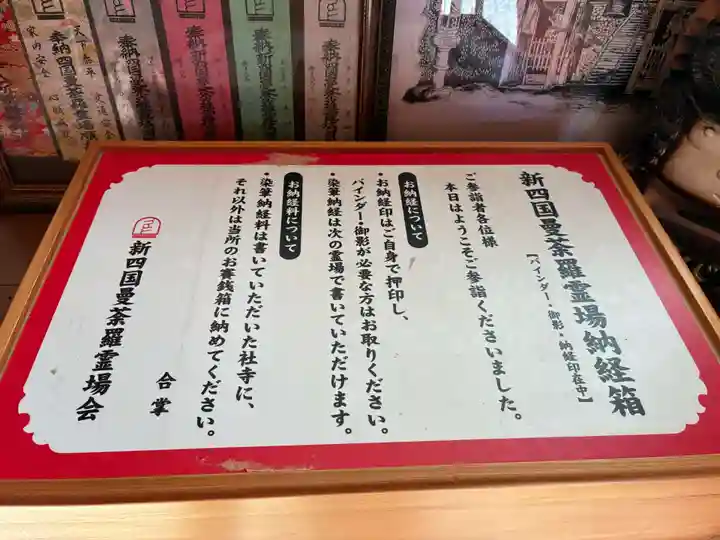 新四国曼荼羅霊場納経箱
【バインダー・御影・納経印在中】
ご参詣者各位様
本日はようこそご参詣くださいました。
お納経について
・お納経印はご自身で押印し、
バインダー・御影が必要な方はお取りください。
・染筆納経は次の霊場で書いていただけます。
お納経料について
・染筆納経料は書いていただいた社寺に、
それ以外は当所のお賽銭箱に納めてください。
合掌
新四国曼荼羅霊場会
天下泰平
奉納四国曼荼羅霊場
家内安全